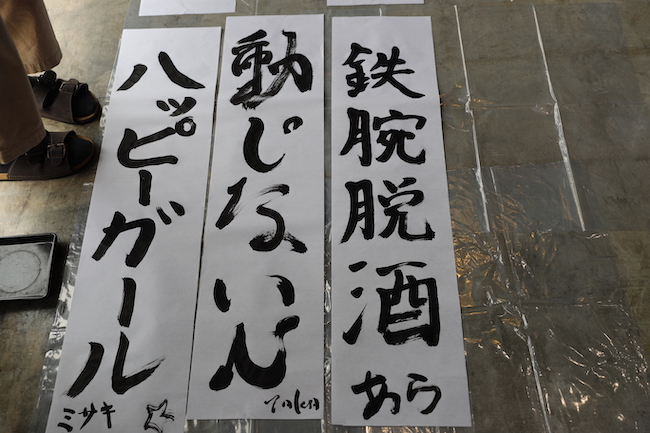 鉄腕脱酒
あら
動じない心
ハッピーガール
ミサキ